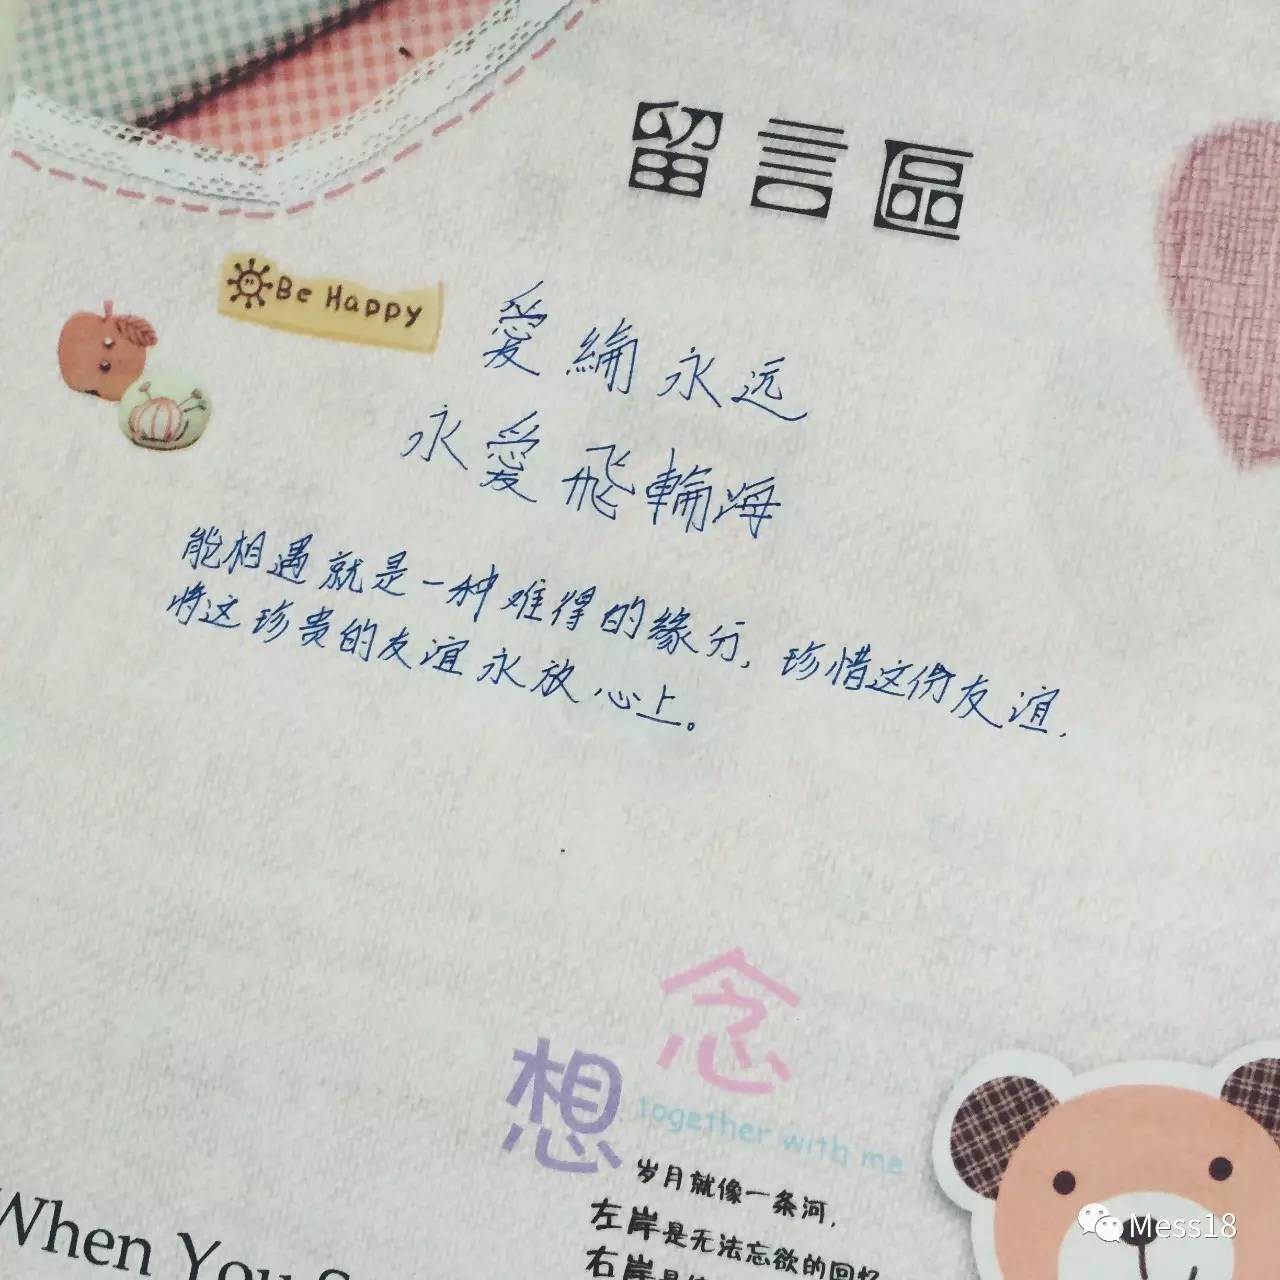 留言區
Be Happy
愛綸永远
永愛飛輪海
能相遇就是一种难得的缘分，珍惜这份友谊，
将这珍贵的友谊永放心上。
想念
together with me
岁月就像一条河，
左岸是无法忘欲的回忆
右岸是
When You
Mess18